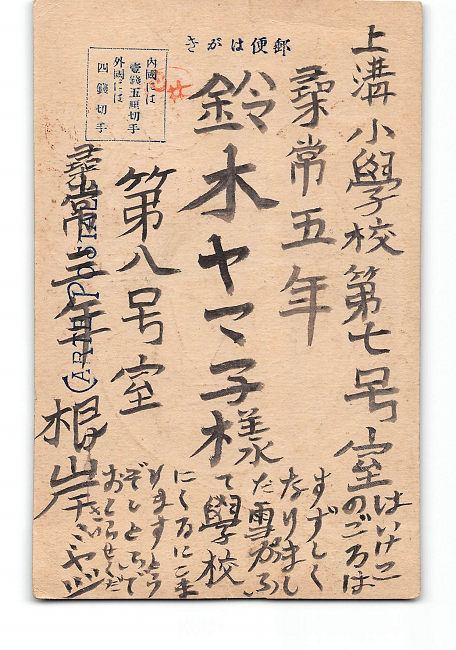 郵便はがき
内國には
壹錢五厘切手
外國には
四錢切手
CARTE POSTALE
上溝小學校第七号室
尋常五年
鈴木ヤマ子様
第八号室
尋常三年 根岸
はいけこ
のごろは
すずしく
なりまし
た雪がふ
て學校
にくるにこま
りますどう